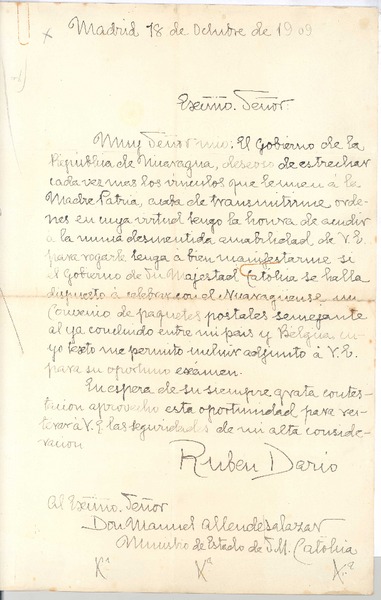 Madrid 18 de Octubre de 1909
Exmo. Señor
Muy Señor mio: El Gobierno de la
República de Nicaragua, deseoso de estrechar
cada vez mas los vínculos que le unen á la
Madre Patria, acaba de transmitirme orde-
nes en cuya virtud tengo la honra de acudir
á la nunca desmentida amabilidad de V.E.
para rogarle tenga á bien manifestarme si
el Gobierno de Su Majestad Católica se halla
dispuesto á celebrar con el Nicaragüense un
Convenio de paquetes postales semejante
al ya concluido entre mi país y Bélgica cu-
yo texto me permito incluir adjunto á V.E.
para su oportuno examen.
En espera de su siempre grata contes-
tacion aprovecho esta oportunidad para rei-
terar á V.E. las seguridades de mi alta conside-
racion
Ruben Dario
Al Exmo. Señor
Don Manuel Allendesalazar
Ministro de Estado de S.M. Católica